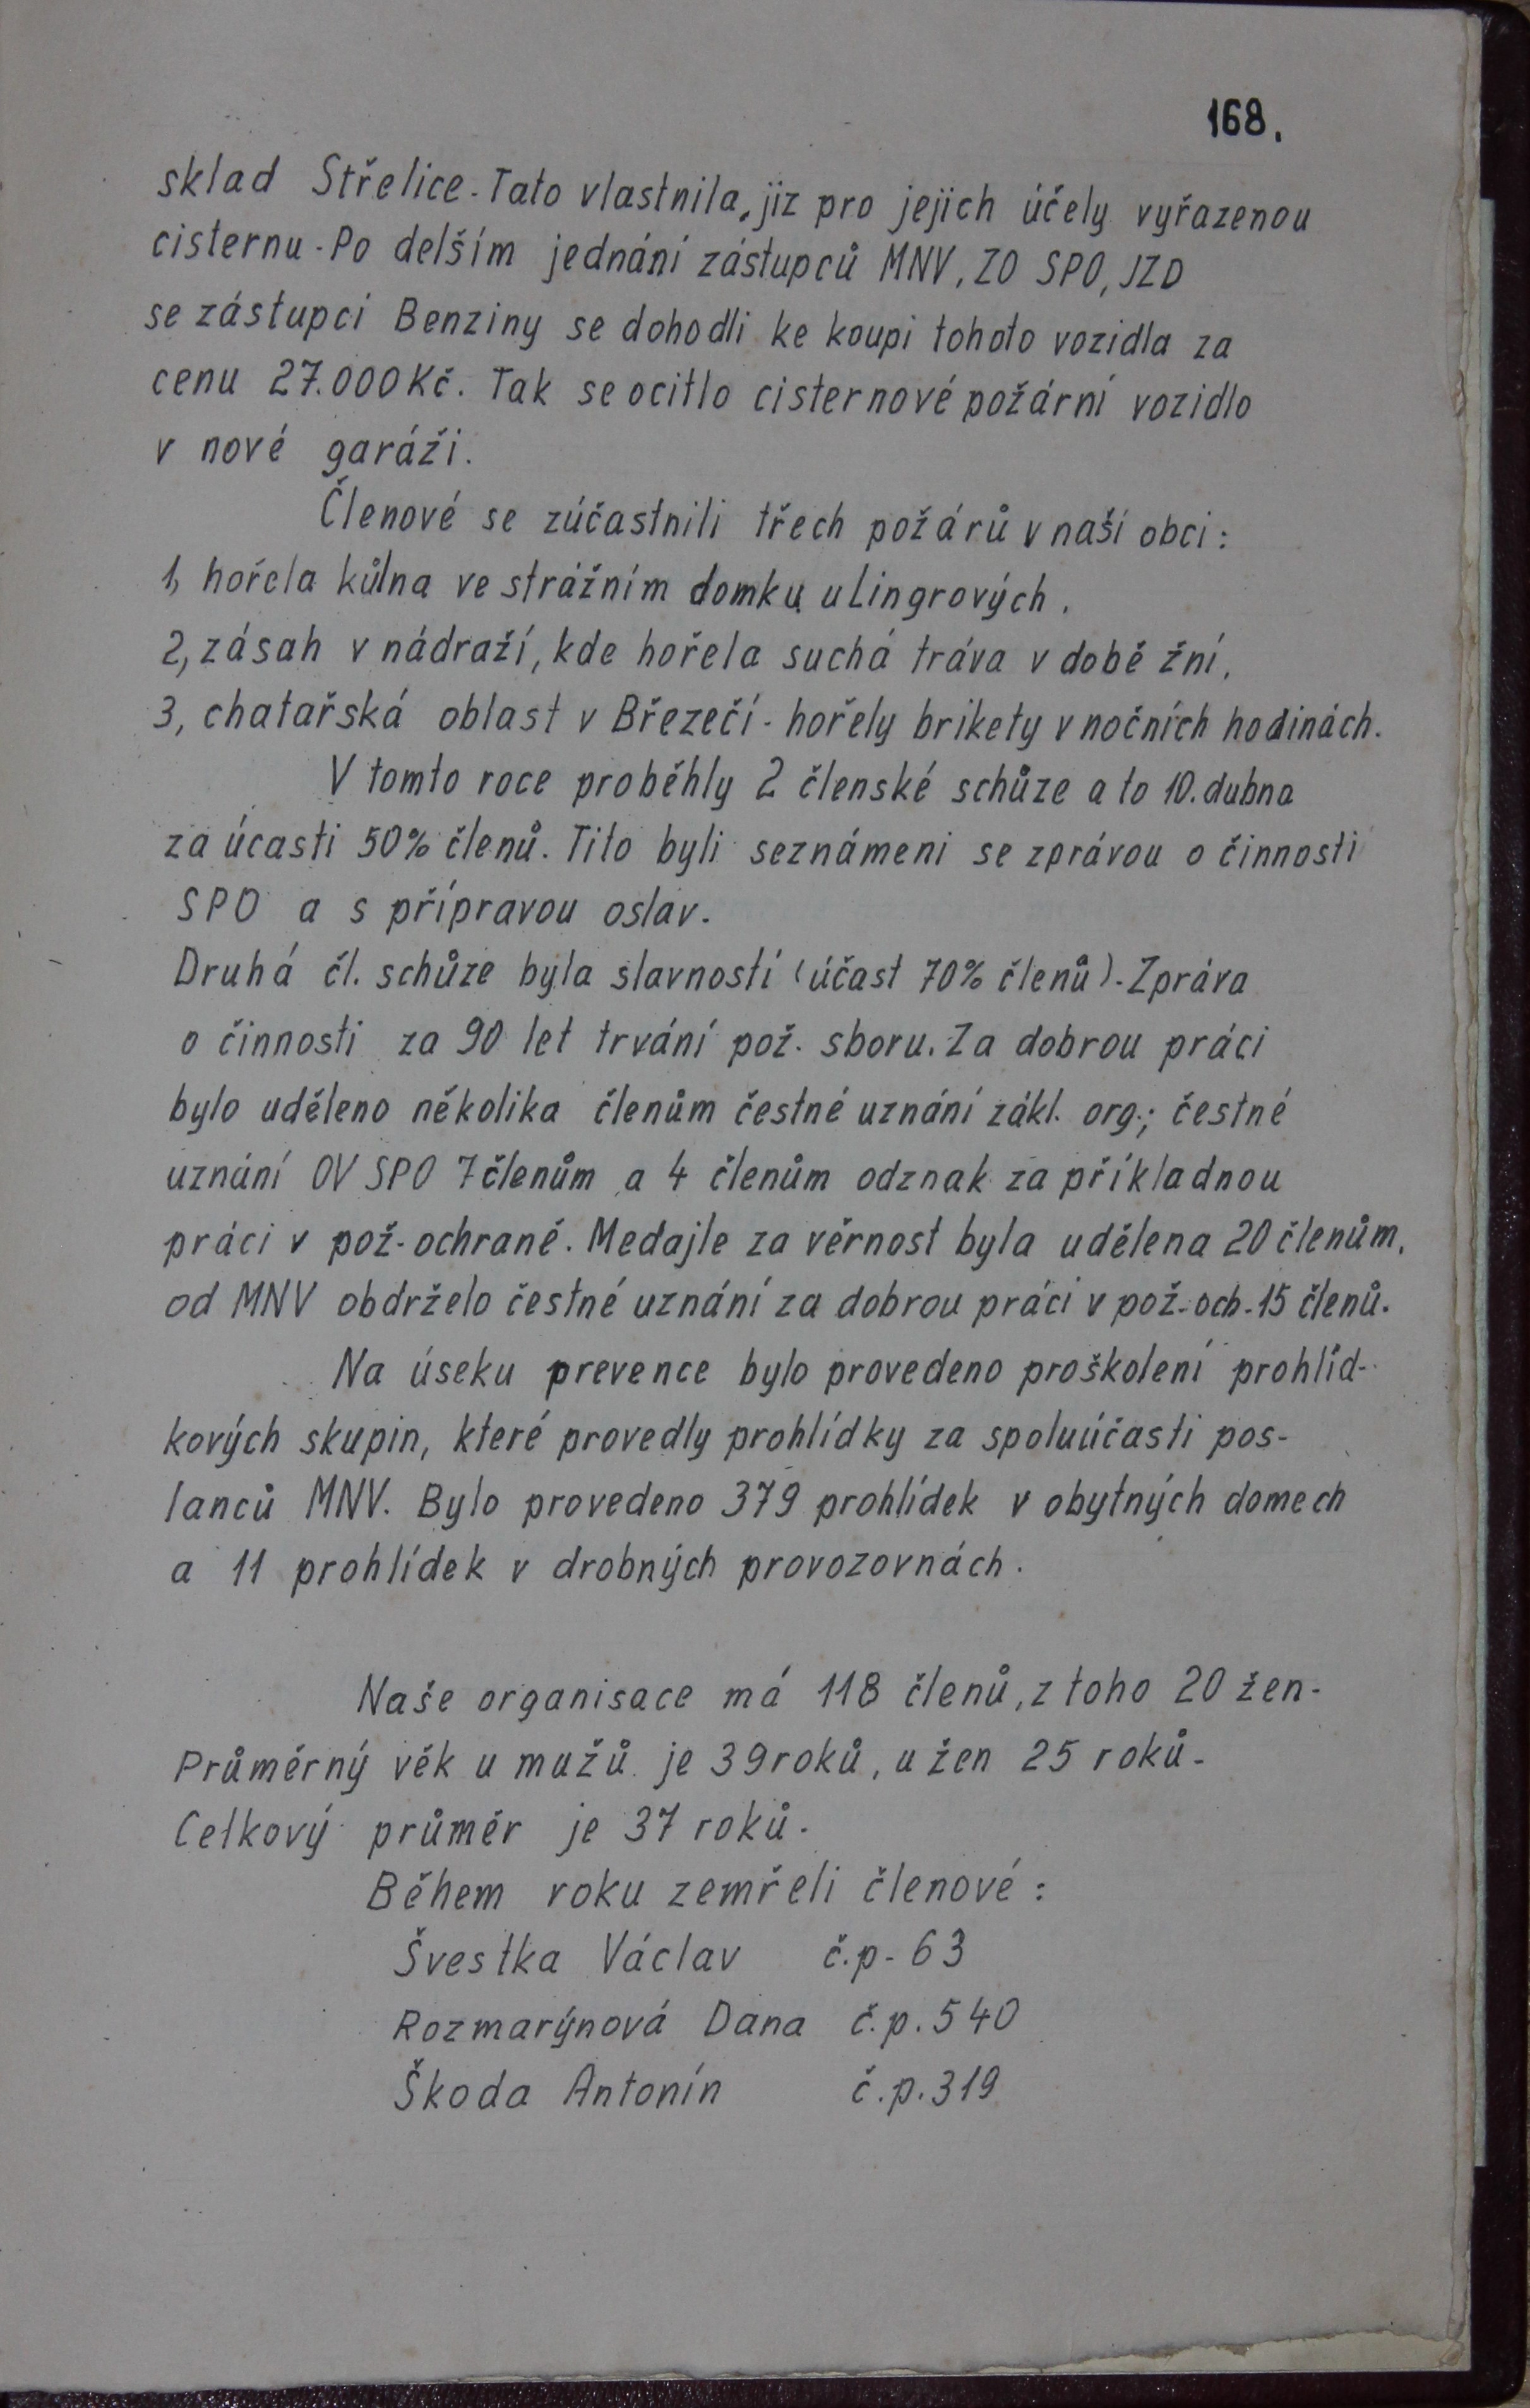 168.
sklad Střelice. Tato vlastnila, jiz pro jejich účely vyřazenou
cisternu. Po delším jednání zástupců MNV, ZO SPO, JZD
se zástupci Benziny se dohodli ke koupi tohoto vozidla za
cenu 27.000 Kč. Tak se ocitlo cisternové požární vozidlo
v nové garáži.
Členové se zúčastnili třech požárů v naší obci:
1, hořela kůlna ve strážním domku u Lingrových.
2, zásah v nádraží, kde hořela suchá tráva v době žní.
3, chatařská oblast v Březečí - hořely brikety v nočních hodinách.
V tomto roce proběhly 2 členské schůze a to 10. dubna
za úcasti 50% členů. Tito byli seznámeni se zprávou o činnosti
SPO a s přípravou oslav.
Druhá čl. schůze byla slavností (účast 70% členů). Zpráva
o činnosti za 90 let trvání pož. sboru. Za dobrou práci
bylo uděleno několika členům čestné uznání zákl. org.; čestné
uznání OV SPO 7 členům a 4 členům odznak za příkladnou
práci v pož. ochraně. Medajle za věrnost byla udělena 20 členům,
od MNV obdrželo čestné uznání za dobrou práci v pož. och. 15 členů.
Na úseku prevence bylo provedeno proškolení prohlíd-
kových skupin, které provedly prohlídky za spoluúčasti pos-
lanců MNV. Bylo provedeno 379 prohlídek v obytných domech
a 11 prohlídek v drobných provozovnách.
Naše organisace má 118 členů, z toho 20 žen.
Průměrný věk u mužů je 39 roků, u žen 25 roků.
Celkový průměr je 37 roků.
Během roku zemřeli členové:
Švestka Václav č.p. 63
Rozmarýnová Dana č.p. 540
Škoda Antonín č.p. 319